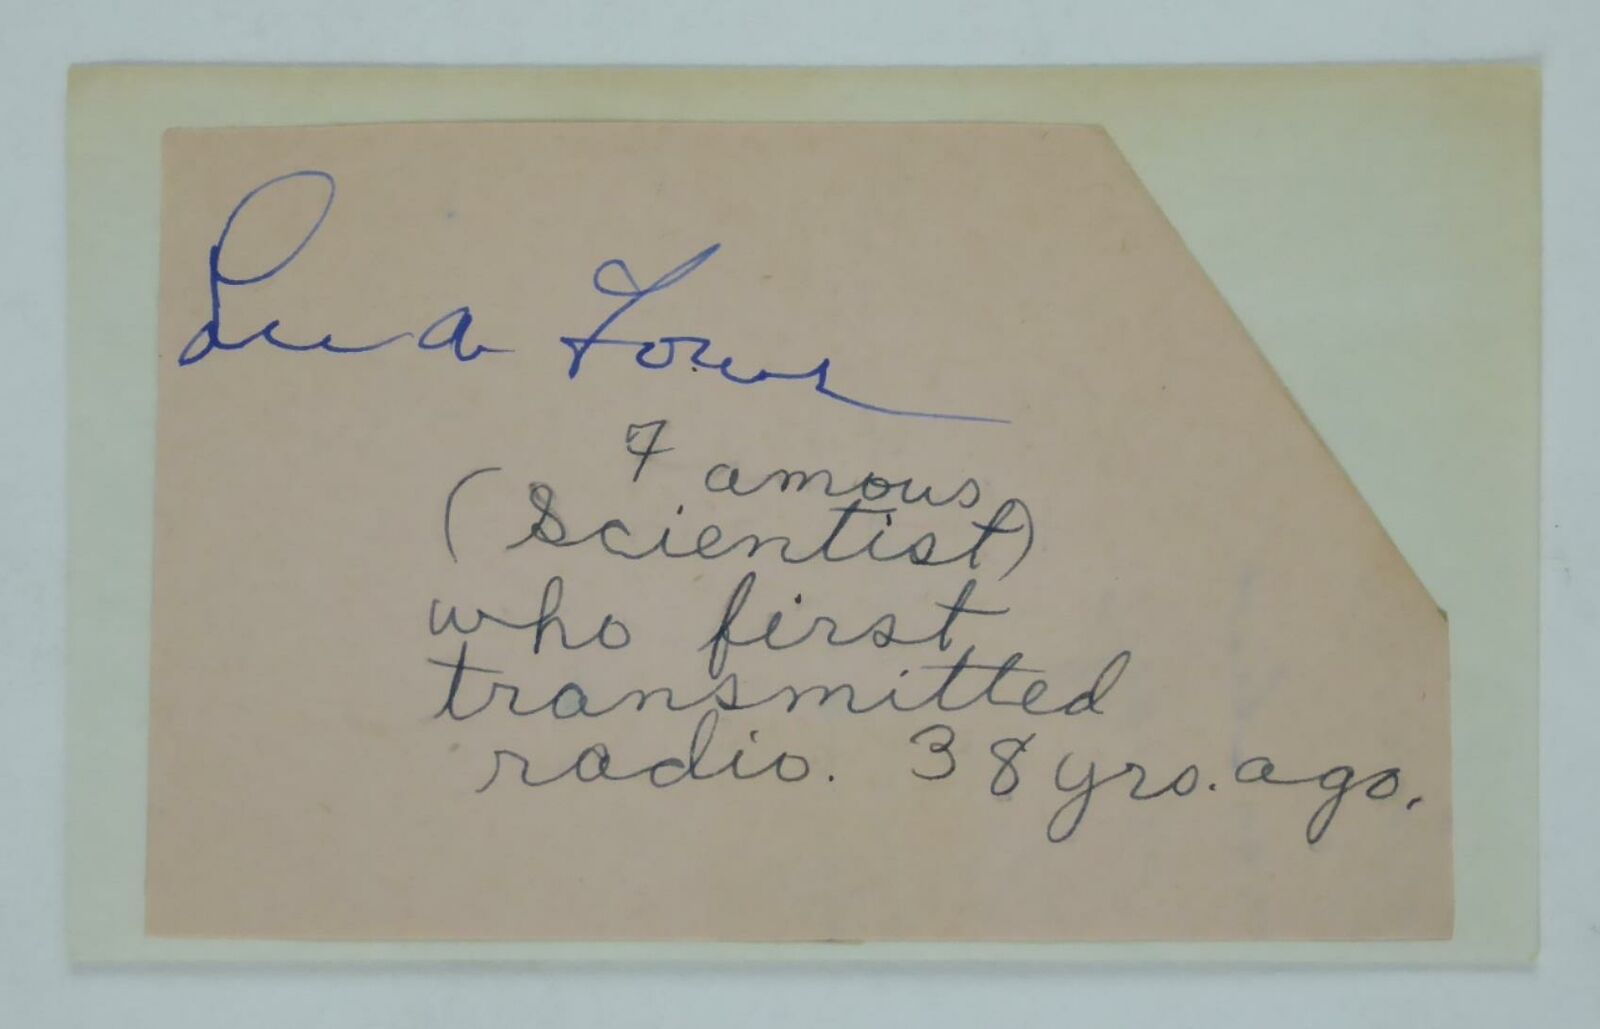 Lee de Forest
Famous
(Scientist)
who first
transmitted
radio. 38 yrs. ago.